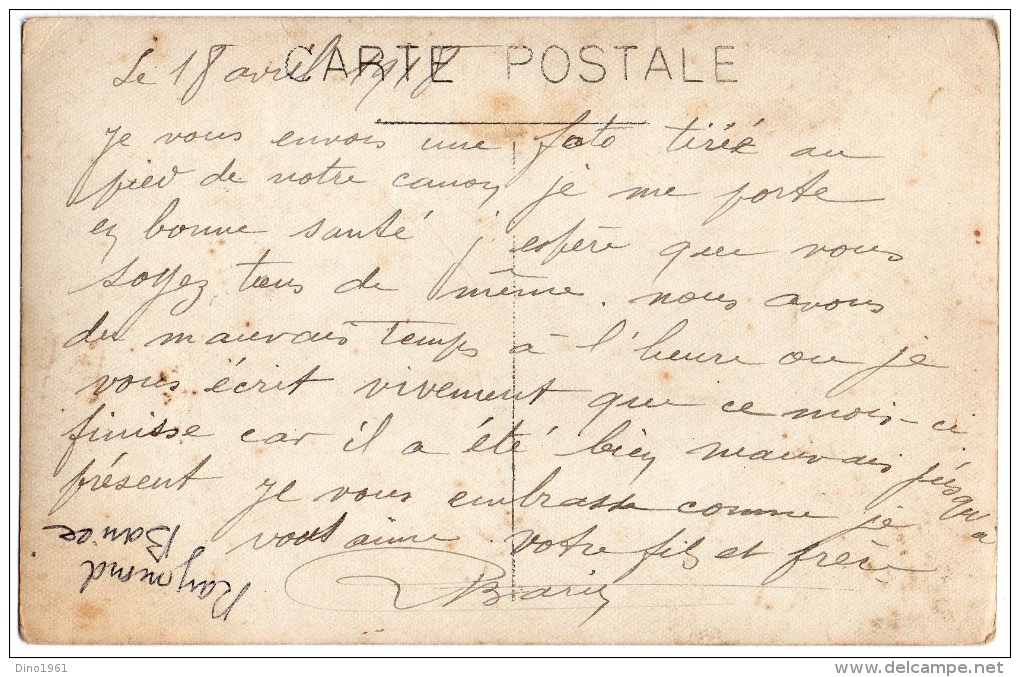 CARTE POSTALE
Le 18 avril 1918
je vous envois une foto tirée au
pied de notre canon je me porte
en bonne santé j'espère que vous
soyez tous de même. nous avons
du mauvais temps à l'heure ou je
vous écrit vivement que ce mois-ci
finisse car il a été bien mauvais jusqu'à
présent je vous embrasse comme je
vous aime votre fils et frère
Raymond
Dino1961
www.delcampe.net